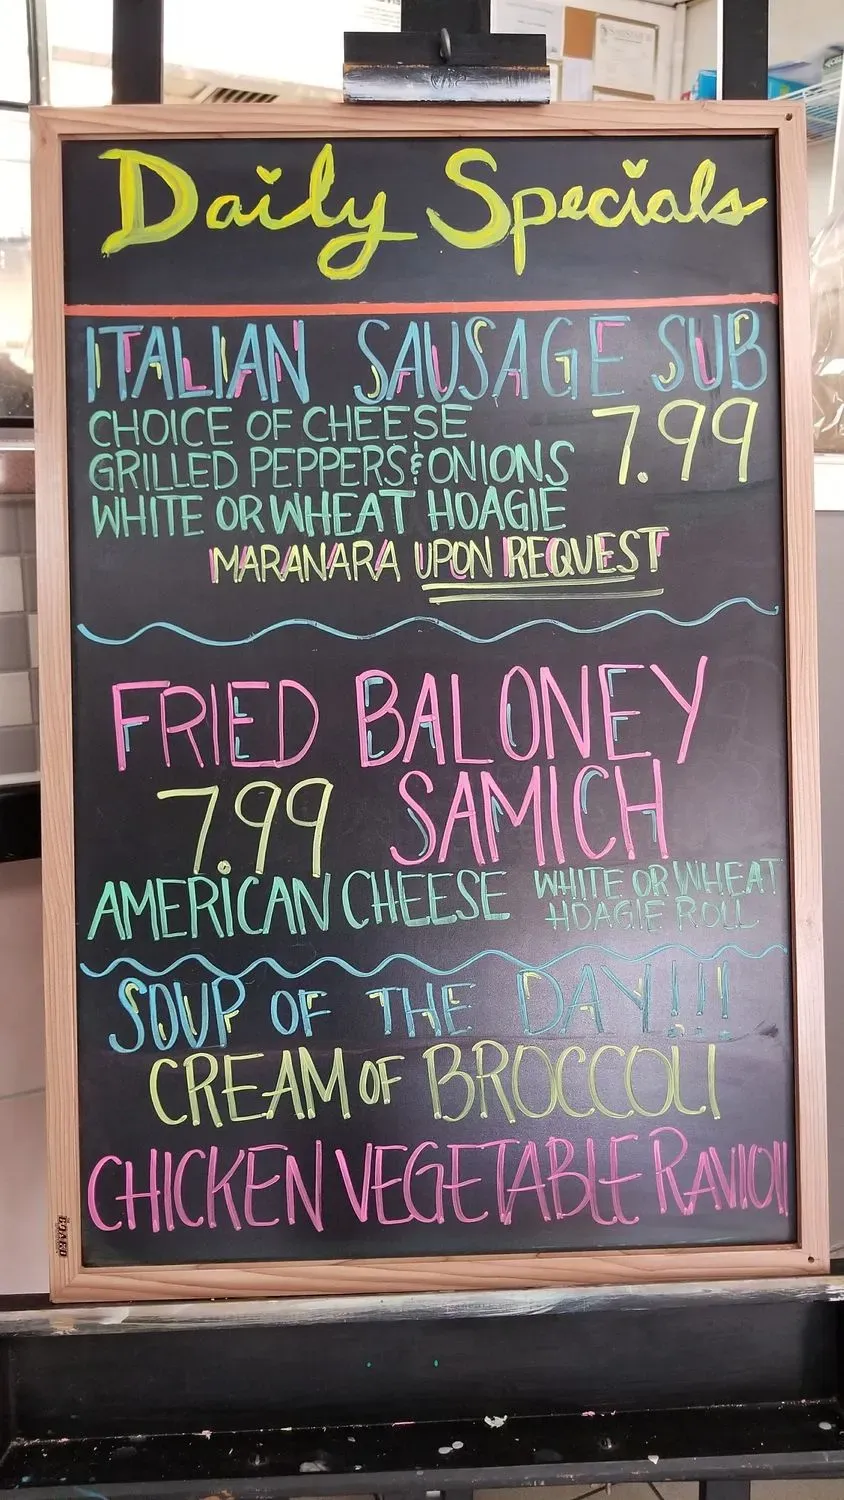 Daily Specials
ITALIAN SAUSAGE SUB
CHOICE OF CHEESE
7.99
GRILLED PEPPERS & ONIONS
WHITE OR WHEAT HOAGIE
MARANARA UPON REQUEST
FRIED BALONEY
7.99 SAMICH
AMERICAN CHEESE
WHITE OR WHEAT
HOAGIE ROLL
SOUP OF THE DAY!!!
CREAM OF BROCCOLI
CHICKEN VEGETABLE RAVIOLI